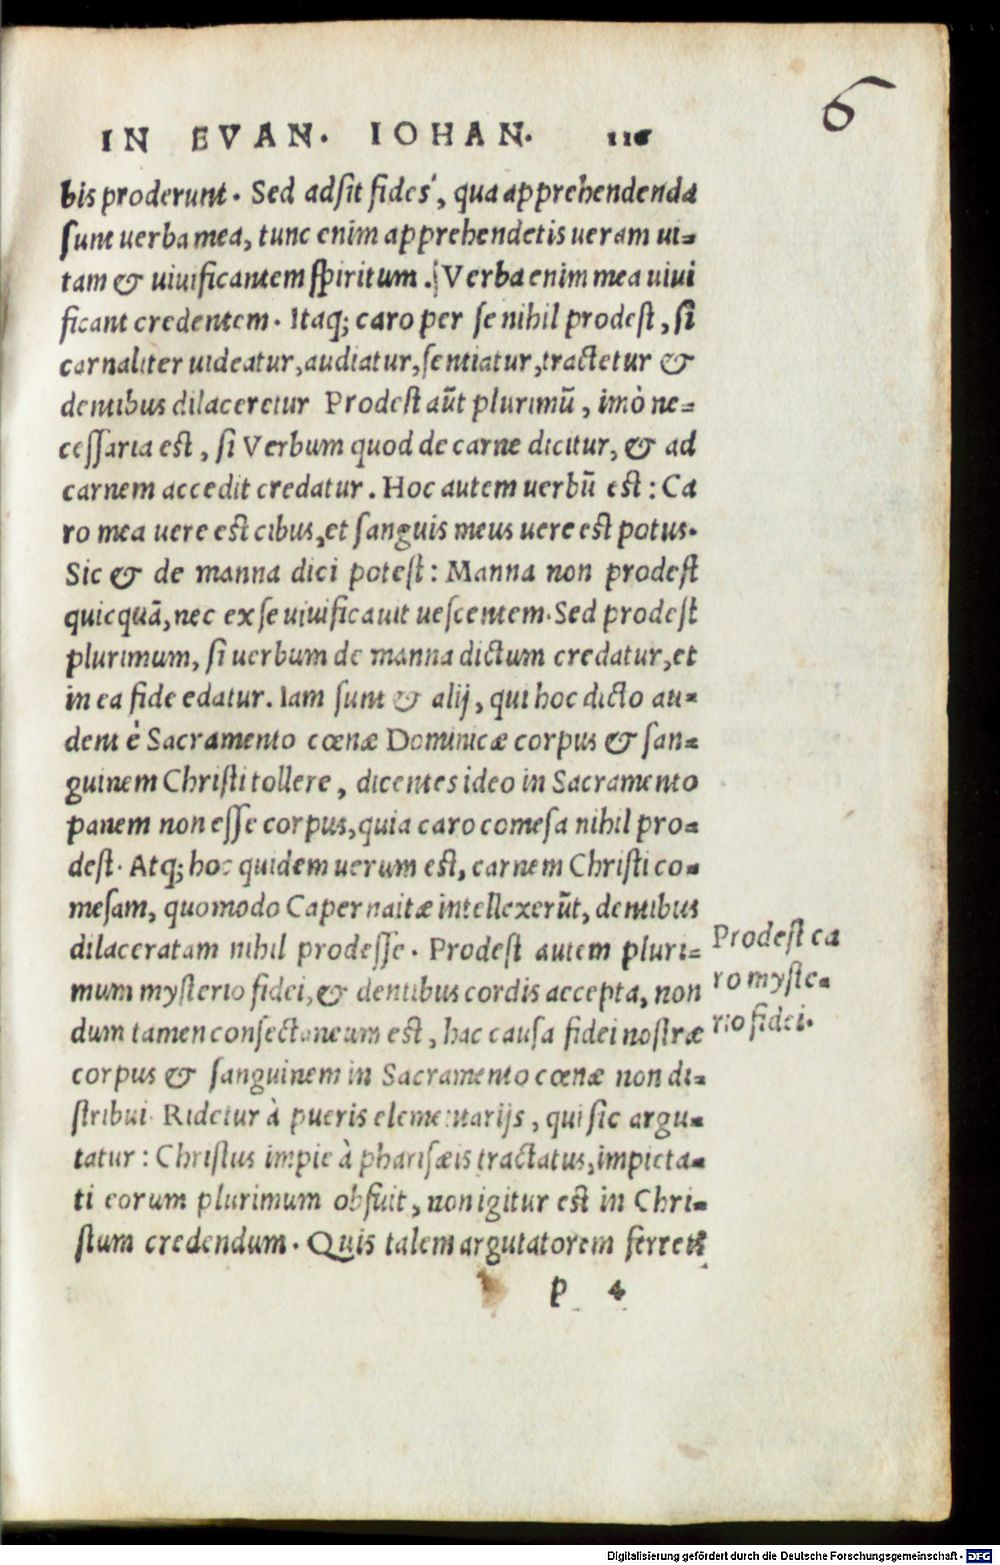 6
IN EVAN. IOHAN. 116
bis proderunt. Sed adsit fides, qua apprehendenda
sunt uerba mea, tunc enim apprehendetis ueram ui-
tam & uiuificantem spiritum. Verba enim mea uiui
ficant credentem. Itaq; caro per se nihil prodest, si
carnaliter uideatur, audiatur, sentiatur, tractetur &
dentibus dilaceretur Prodest aūt plurimū, imò ne-
cessaria est, si Verbum quod de carne dicitur, & ad
carnem accedit credatur. Hoc autem uerbū est: Ca
ro mea uere est cibus, et sanguis meus uere est potus.
Sic & de manna dici potest: Manna non prodest
quicquā, nec ex se uiuificauit uescentem. Sed prodest
plurimum, si uerbum de manna dictum credatur, et
in ea fide edatur. Iam sunt & alij, qui hoc dicto au-
dent è Sacramento cœnæ Dominicæ corpus & san-
guinem Christi tollere, dicentes ideo in Sacramento
panem non esse corpus, quia caro comesa nihil pro-
dest. Atq; hoc quidem uerum est, carnem Christi co-
mesam, quomodo Capernaitæ intellexerūt, dentibus
dilaceratam nihil prodesse. Prodest autem pluri-
mum mysterio fidei, & dentibus cordis accepta, non
dum tamen consectaneum est, hac causa fidei nostræ
corpus & sanguinem in Sacramento cœnæ non di-
stribui. Ridetur à pueris elementarijs, qui sic argu-
tatur: Christus impie à pharisæis tractatus, impieta-
ti eorum plurimum obfuit, non igitur est in Chri-
stum credendum. Quis talem argutatorem ferret?
Prodest ca
ro myste-
rio fidei.
P 4
Digitalisierung gefördert durch die Deutsche Forschungsgemeinschaft - DFG